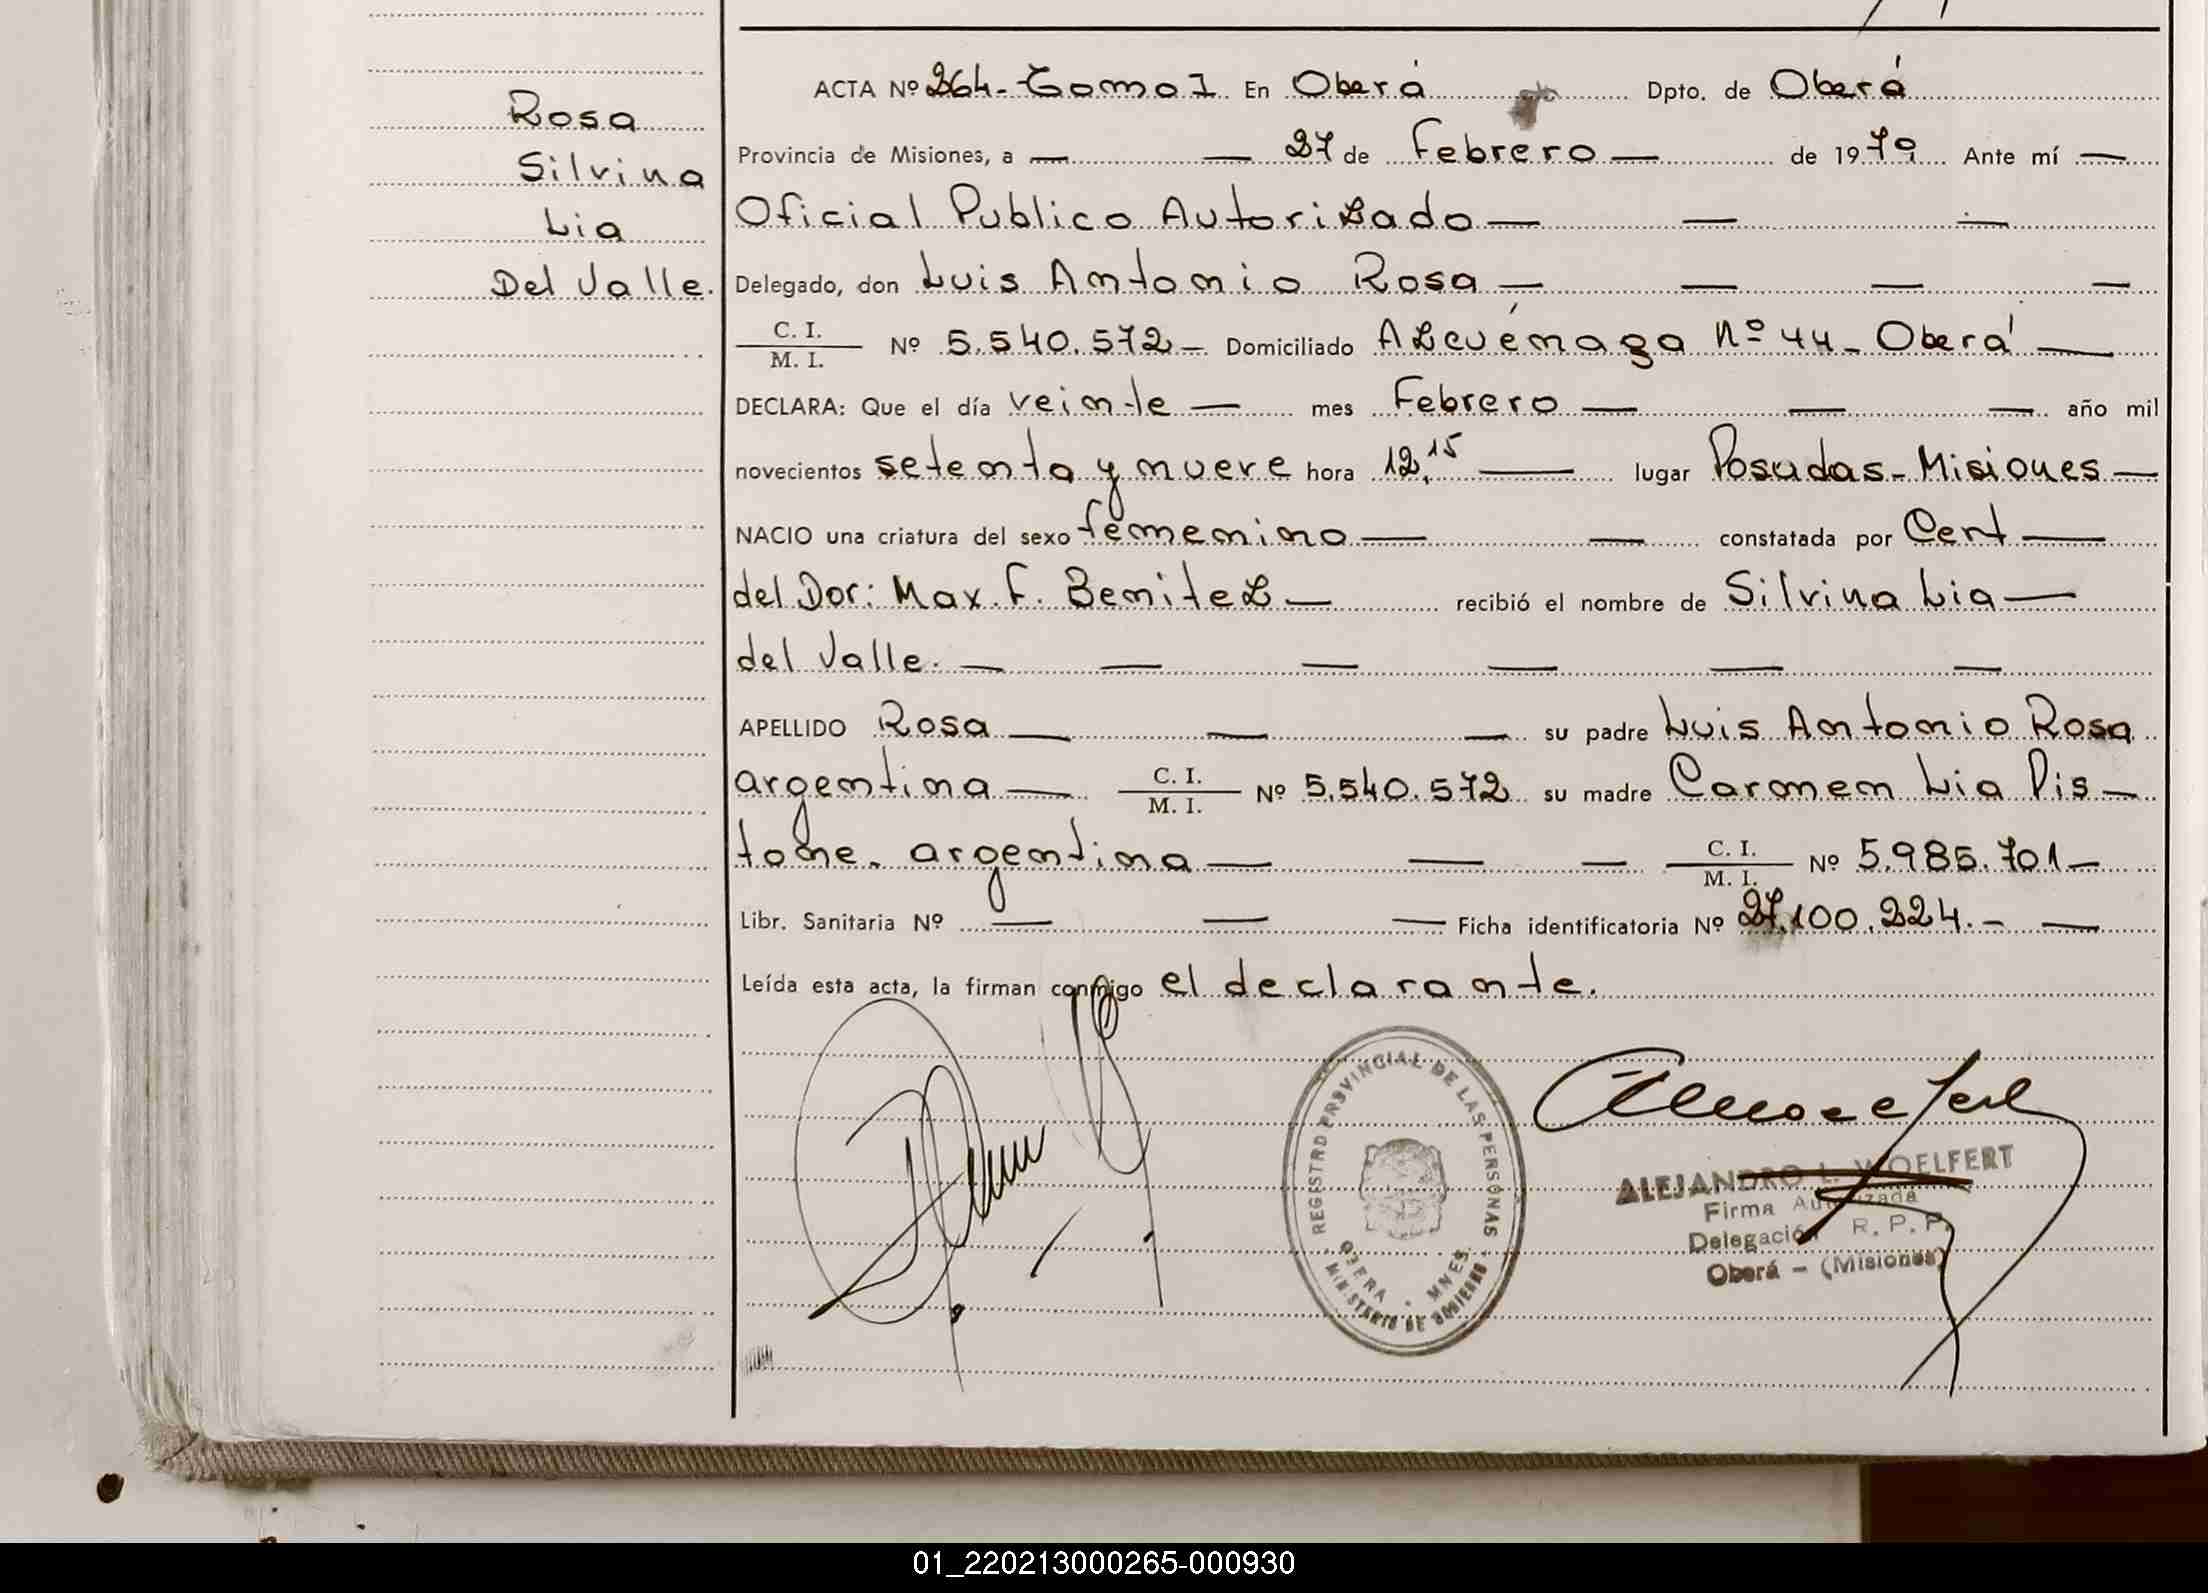 Rosa
Silvina
Lia
Del Valle.
ACTA Nº 264 - Tomo I En Oberá Dpto. de Oberá
Provincia de Misiones, a — — 27 de Febrero — de 1979 Ante mí —
Oficial Publico Autorizado — — —
Delegado, don Luis Antonio Rosa — — — —
C. I.
M. I. Nº 5.540.572 - Domiciliado Azcuénaga Nº 44 - Oberá —
DECLARA: Que el día veinte — mes Febrero — — — año mil
novecientos setenta y nueve hora 12,15 — lugar Posadas - Misiones —
NACIO una criatura del sexo femenino — — constatada por Cert —
del Dor: Max. F. Benitez — recibió el nombre de Silvina Lia —
del Valle. — — — — — —
APELLIDO Rosa — — — su padre Luis Antonio Rosa
argentina — C. I.
M. I. Nº 5.540.572 su madre Carmen Lia Pis —
tone. argentina — — — C. I.
M. I. Nº 5.985.701 —
Libr. Sanitaria Nº — — — Ficha identificatoria Nº 27.100.224. - —
Leída esta acta, la firman conmigo el declarante.
REGISTRO PROVINCIAL DE LAS PERSONAS
OBERA - MNES.
MINISTERIO DE GOBIERNO
ALEJANDRO L. WOELFERT
Firma Autorizada
Delegación R. P. P.
Oberá - (Misiones)
01_220213000265-000930